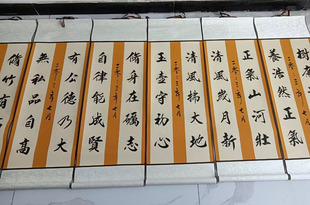 養浩然正氣
正氣山河壯
七月
清風歲月新
清風拂大地
七月
玉壺守初心
脩身在礪志
七月
自律能成賢
有公德乃大
七月
無私品自高
脩竹有